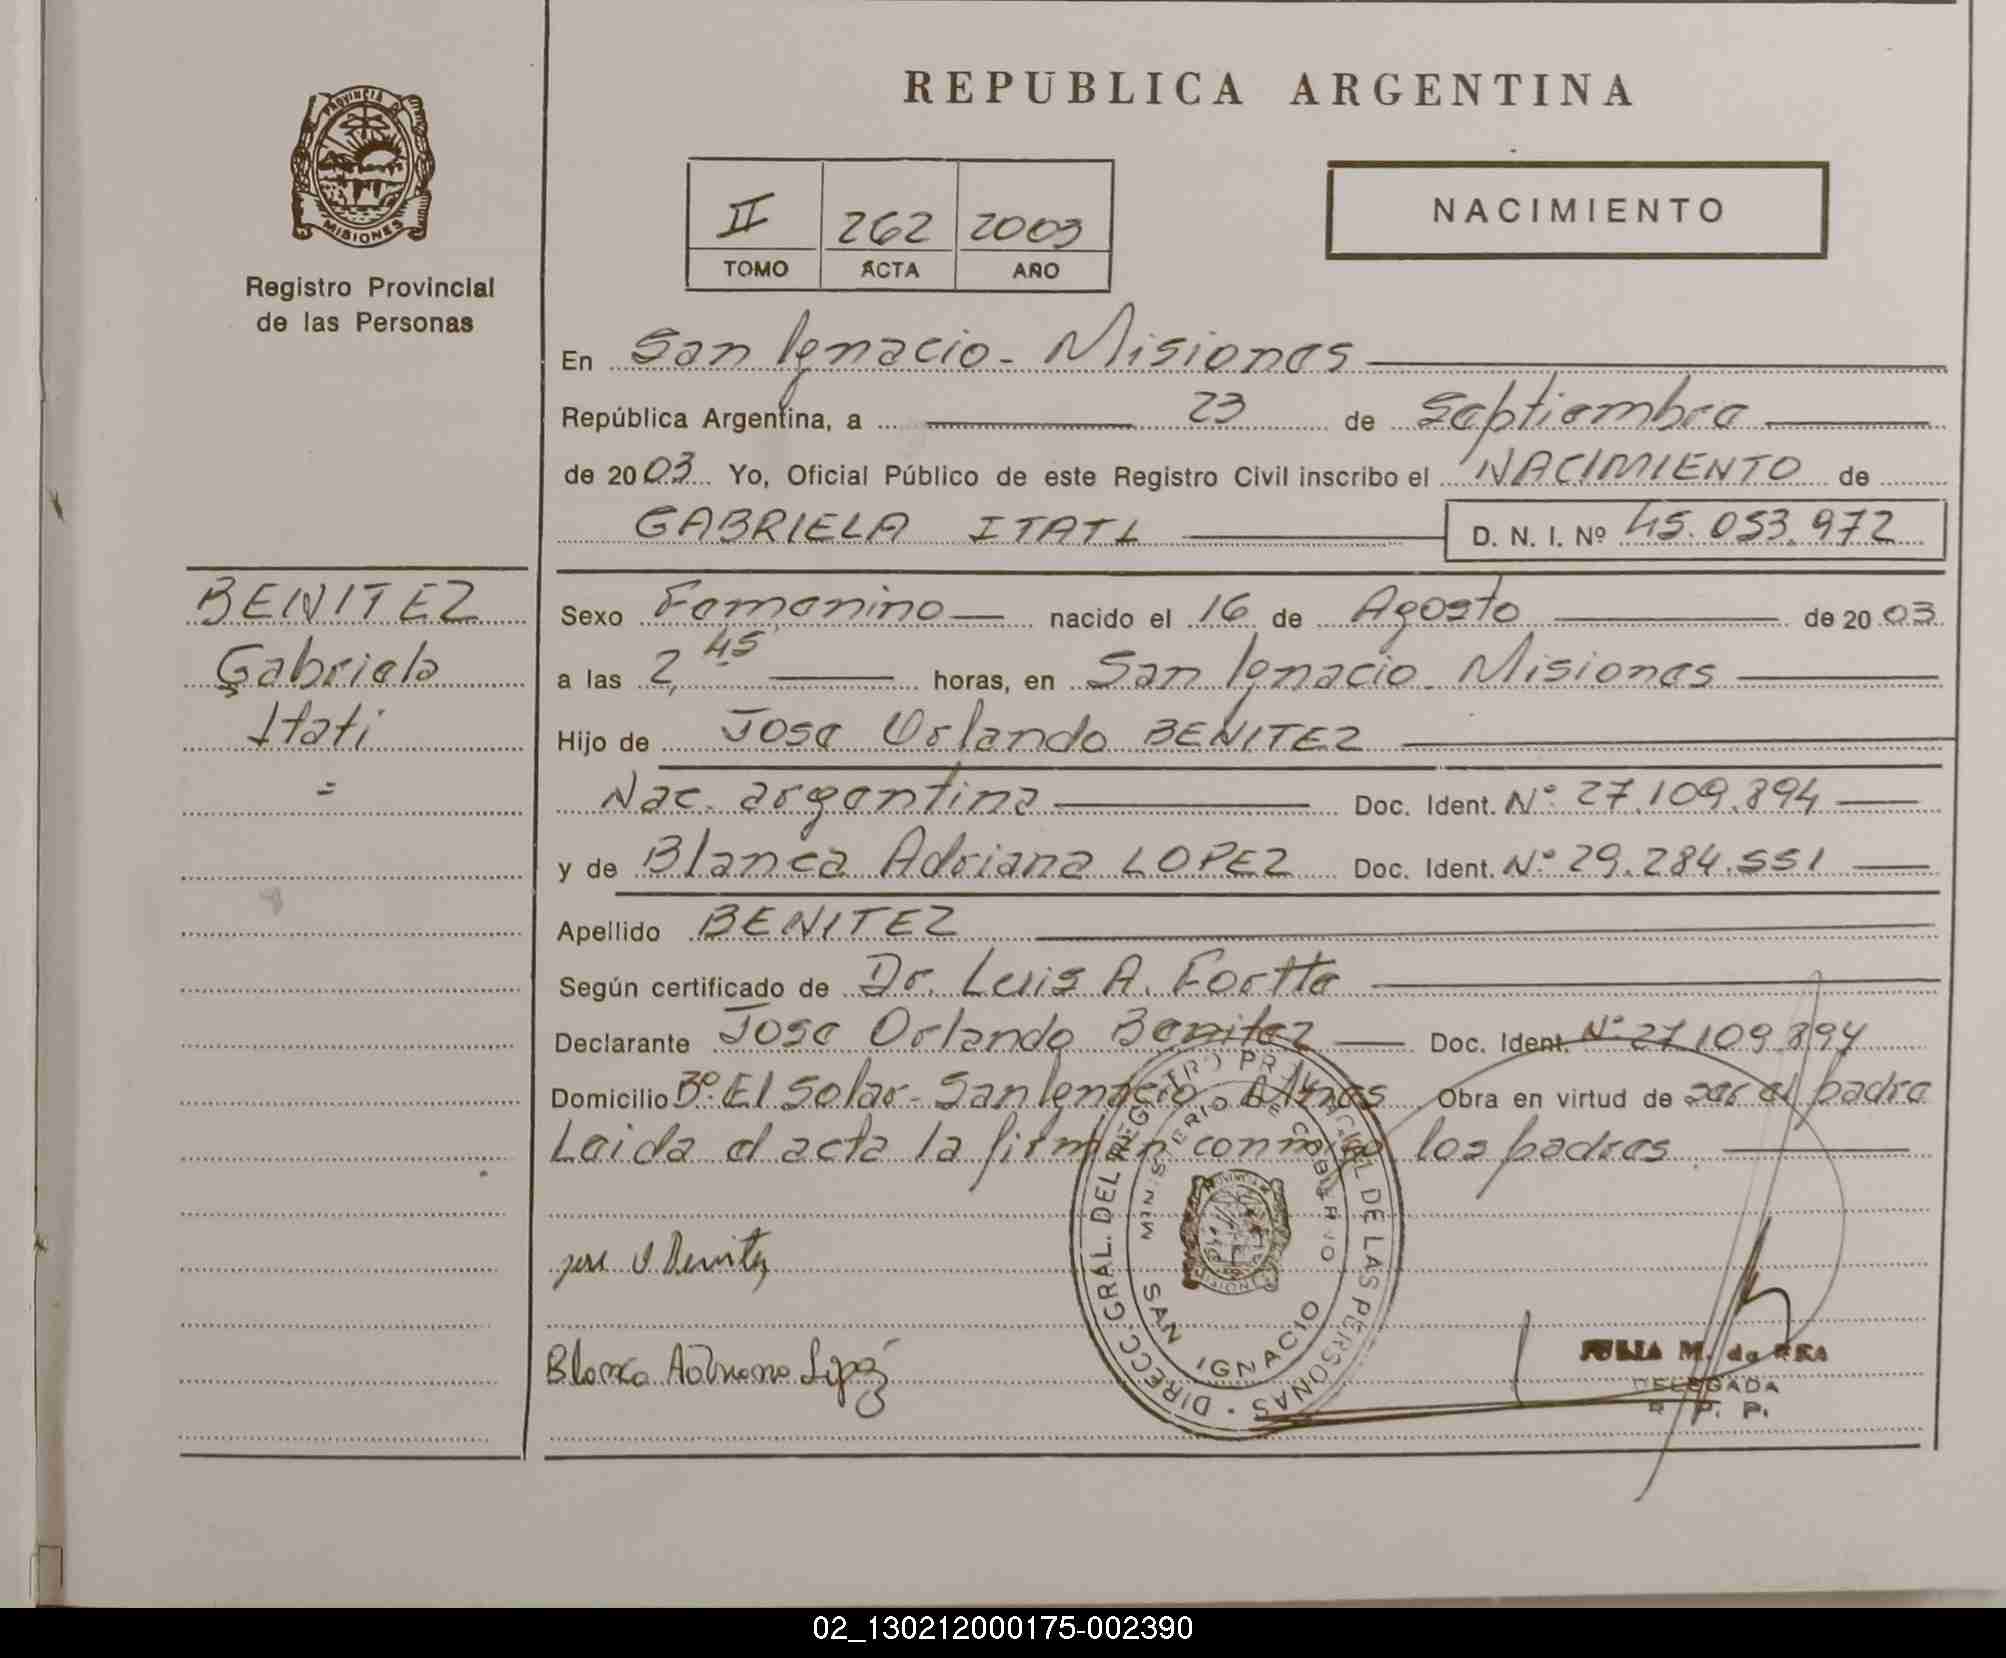 REPUBLICA ARGENTINA
PROVINCIA DE
MISIONES
Registro Provincial
de las Personas
II 262 2003
TOMO ACTA AÑO
NACIMIENTO
En San Ignacio - Misiones
República Argentina, a 23 de Septiembre
de 2003 Yo, Oficial Público de este Registro Civil inscribo el NACIMIENTO de
GABRIELA ITATI D. N. I. Nº 45.053.972
BENITEZ
Gabriela
Itati
=
Sexo Femenino nacido el 16 de Agosto de 2003
a las 2,45 horas, en San Ignacio - Misiones
Hijo de Jose Orlando BENITEZ
Nac. argentina Doc. Ident. Nº 27.109.894
y de Blanca Adriana LOPEZ Doc. Ident. Nº 29.284.551
Apellido BENITEZ
Según certificado de Dr. Luis A.
Declarante Jose Orlando Benitez Doc. Ident. Nº 27.109.894
Domicilio Bº El Solar - San Ignacio Mnes Obra en virtud de ser el padre
Leida el acta la firman conmigo los padres
Jose O. Benitez
Blanca Adriana Lopez
DIRECC. GRAL. DEL REGISTRO PROVINCIAL DE LAS PERSONAS
MINISTERIO DE GOBIERNO
SAN IGNACIO
MISIONES
JULIA M. de
DELEGADA
R. P. P.
02_130212000175-002390